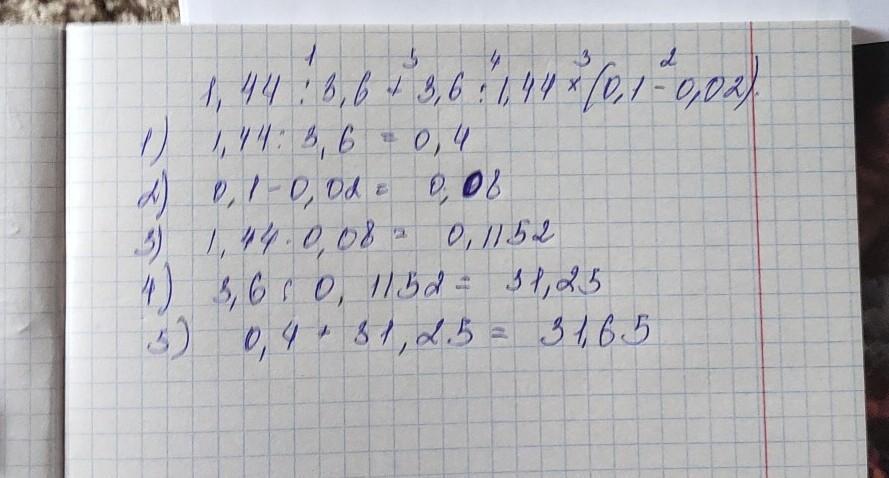 1 5 4 3 2
1,44 : 3,6 + 3,6 : 1,44 × (0,1 - 0,02).
1) 1,44 : 3,6 = 0,4
2) 0,1 - 0,02 = 0,08
3) 1,44 · 0,08 = 0,1152
4) 3,6 : 0,1152 = 31,25
5) 0,4 + 31,25 = 31,65